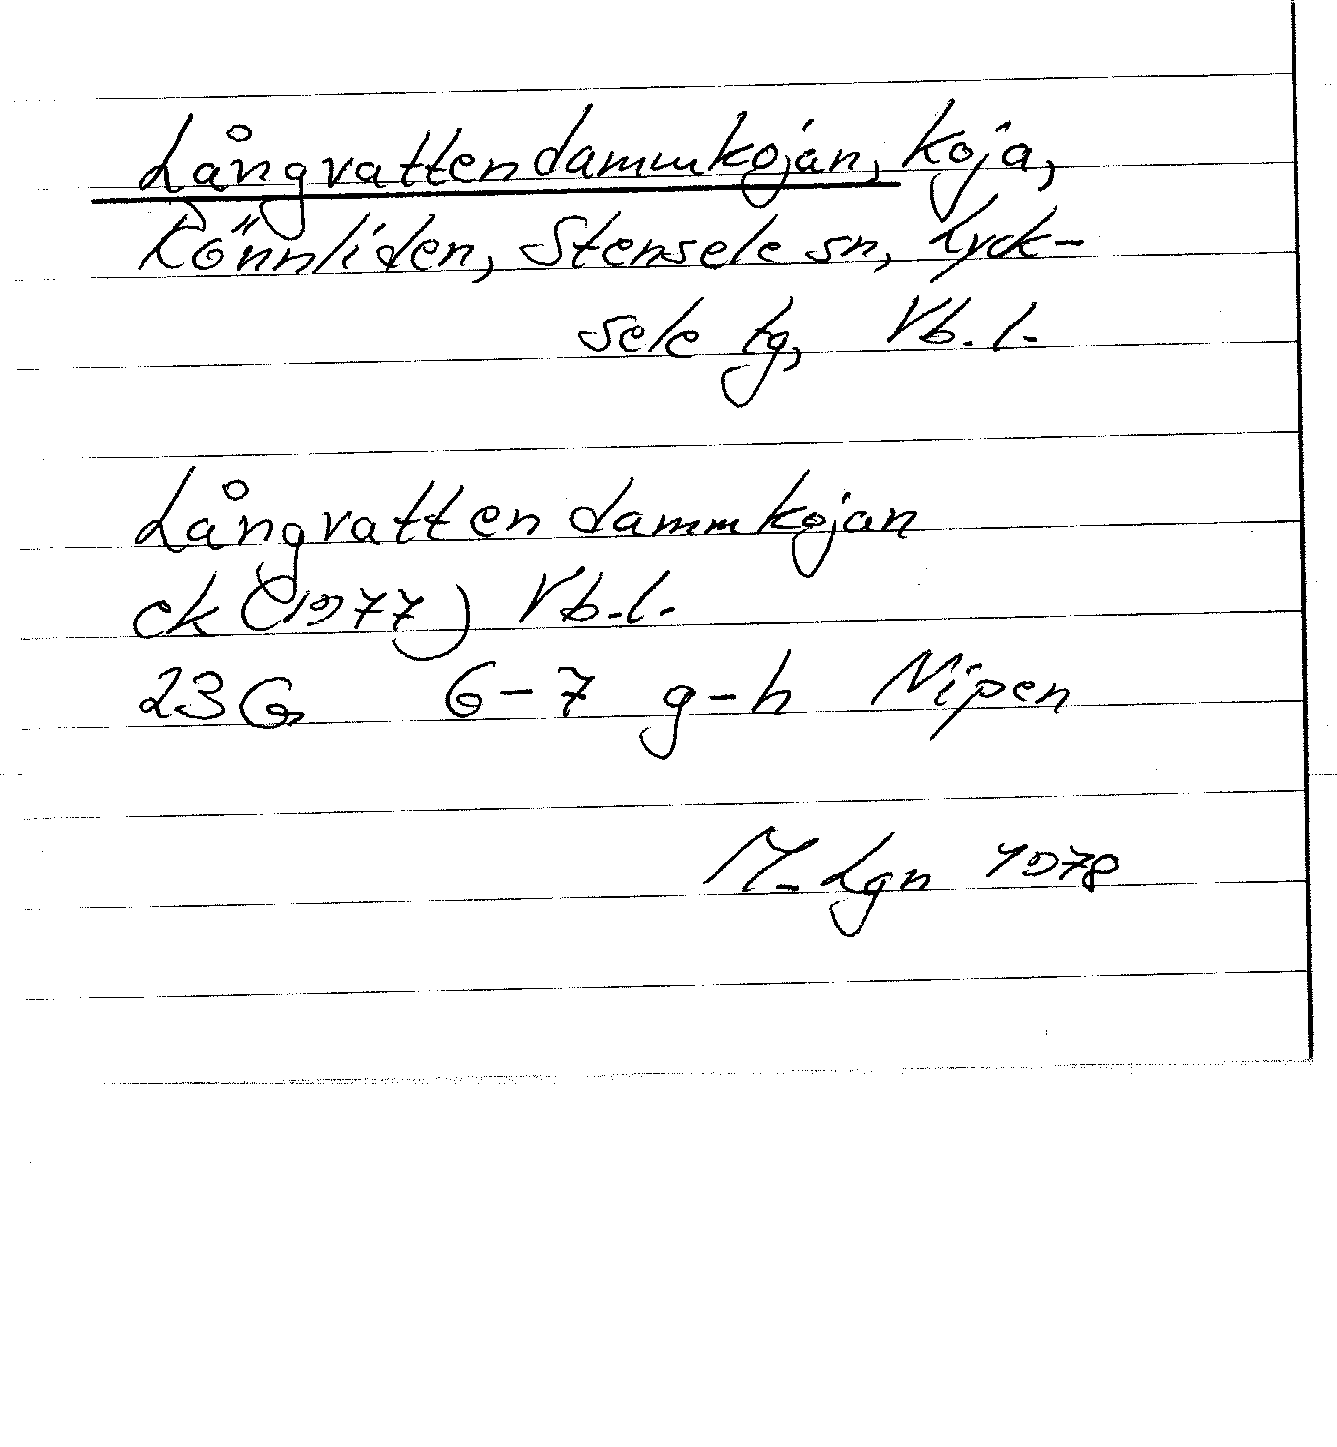 Långvattendammkojan, koja,
Rönnliden, Stensele sn, Lyck-
sele tg, Vb.l.
Långvattendammkojan
ek (1977) Vb.l.
23G 6-7 g-h Nipen
M. Lgn 1978